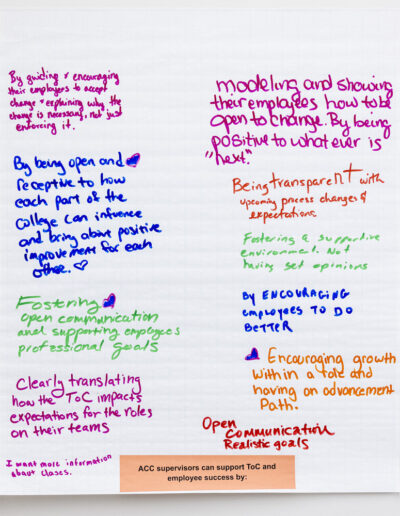 By guiding & encouraging
their employers to accept
change & explaining why the
change is necessary, not just
enforcing it.
By being open and
receptive to how
each part of the
College can infuence
and bring about positive
improvement for each
other.
Fostering
open communication
and supporting employees
professional goals
Clearly translating
how the ToC impacts
expectations for the roles
on their teams
I want more information
about classes.
modeling and showing
their employees how to be
open to change. By being
positive to what ever is
"next."
Being transparent with
upcoming process changes &
expectations.
Fostering a supportive
environment. Not
having set opinions
By ENCOURAGING
employees TO DO
BETTER
Encouraging growth
within a role and
having an advancement
Path.
Open
Communication
Realistic goals
ACC supervisors can support ToC and
employee success by: